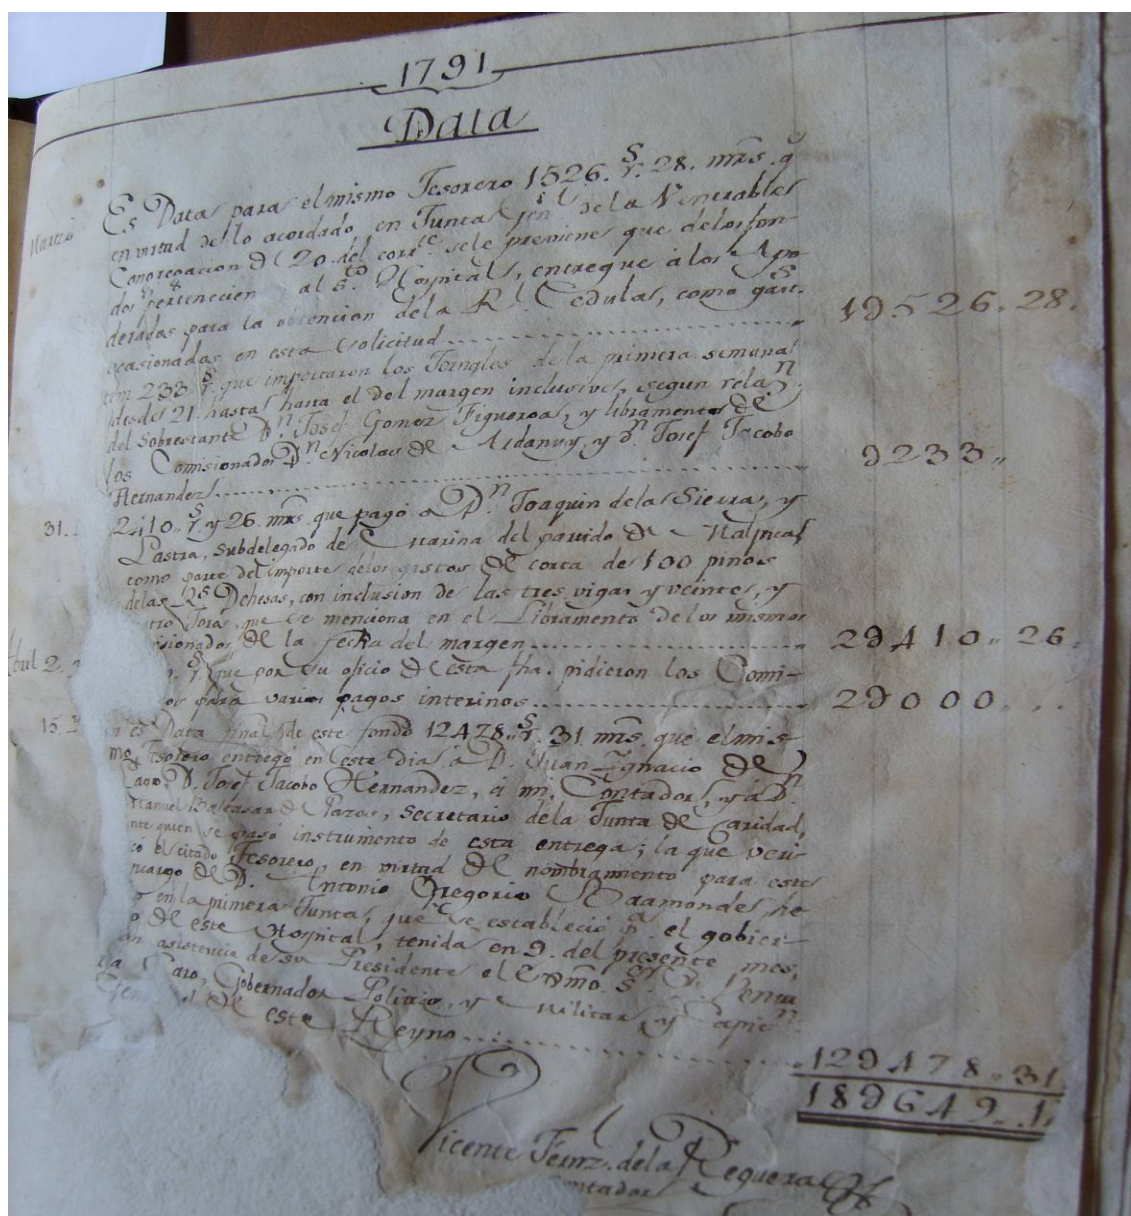 1791
Data
Marzo Es Data para el mismo Tesorero 1526. rˢ. 28. mrs. q̃
en virtud de lo acordado en Junta genˡ. de la Venerable
Congregacion de 20. del corrᵗᵉ. se le previene que de los fon-
dos pertenecien al Sᵗᵒ. Hospital, entregue á los Apo
derados para la obtencion de la Rˡ. Cedula, como gastˢ.
ocasionados en esta solicitud 1ↄ526.28.
233 rˢ. que importaron los Jornales de la primera semana
desde 21. hasta el del margen inclusive, segun relaⁿ.
del Sobrestante Dⁿ. Josef Gomez Figueroa, y libramento de
los Comisionados Dⁿ. Nicolas de y Dⁿ. Josef Jacobo
Hernandez ↄ233,,
31. 2410,, rˢ. y 26. mrs. que pagó a Dⁿ. Joaquin de la Sierra, y
Lastra, Subdelegado de Marina del partido de
como parte del importe de los gastos de corta de 100 pinos
de las Rˢ Dehesas, con inclusion de las tres vigas y veinte, y
que se menciona en el Libramento de los mismos
sionados de la fecha del margen 2ↄ410,, 26.
Abril 2. rˢ. que por su oficio de esta fha. pidieron los Comi-
os para varios pagos interinos 2ↄ000...
15. es Data final de este fondo 12478,, rˢ. 31 mrs. que el mis-
mo Tesorero entregó en este dia á D. Juan Ignacio de
D. Josef Jacobo Hernandez, á mi, Contador, y á Dⁿ.
Manuel Baltasar de Pazos, Secretario de la Junta de Caridad,
nte quien se pasó instrumento de esta entrega; la que veri-
có el citado Tesorero, en virtud de nombramiento para este
ncargo de D. Antonio Gregorio Baamonde, he
o en la primera Junta, que se estableció pᵃ. el gobier-
o de este Hospital, tenida en 9. del presente mes,
on asistencia de su Presidente el Exmo. Sᵒʳ. Dⁿ. Ventu
ra Caro, Gobernador Politico, y Militar, y Capitⁿ.
Gen l de este Reyno 12ↄ478,,31
18ↄ649..1
Vicente Fernz. de la Reguera
Contador